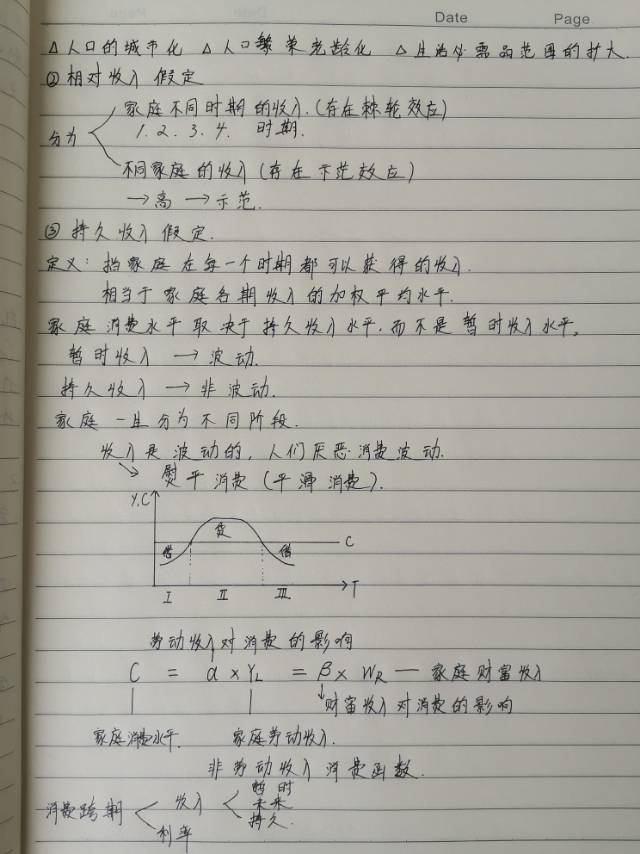 Date Page
△人口的城市化 △人口老龄化 △生活必需品范围的扩大.
② 相对收入假定
家庭不同时期的收入.(存在棘轮效应)
1. 2. 3. 4. 时期.
分为
不同家庭的收入(存在示范效应)
→高→示范.
③ 持久收入假定.
定义:指家庭在每一个时期都可以获得的收入.
相当于家庭各期收入的加权平均水平.
家庭消费水平取决于持久收入水平.而不是暂时收入水平。
暂时收入 → 波动.
持久收入 → 非波动.
家庭一生分为不同阶段.
收入是波动的,人们厌恶消费波动.
↘ 熨平消费(平滑消费).
Y.C
贷
借 借 C
I II III T
劳动收入对消费的影响
C = α × YL = β × WR — 家庭财富收入
↓财富收入对消费的影响
家庭消费水平. 家庭劳动收入.
非劳动收入消费函数.
暂时
消费跨期 收入 未来
持久.
利率